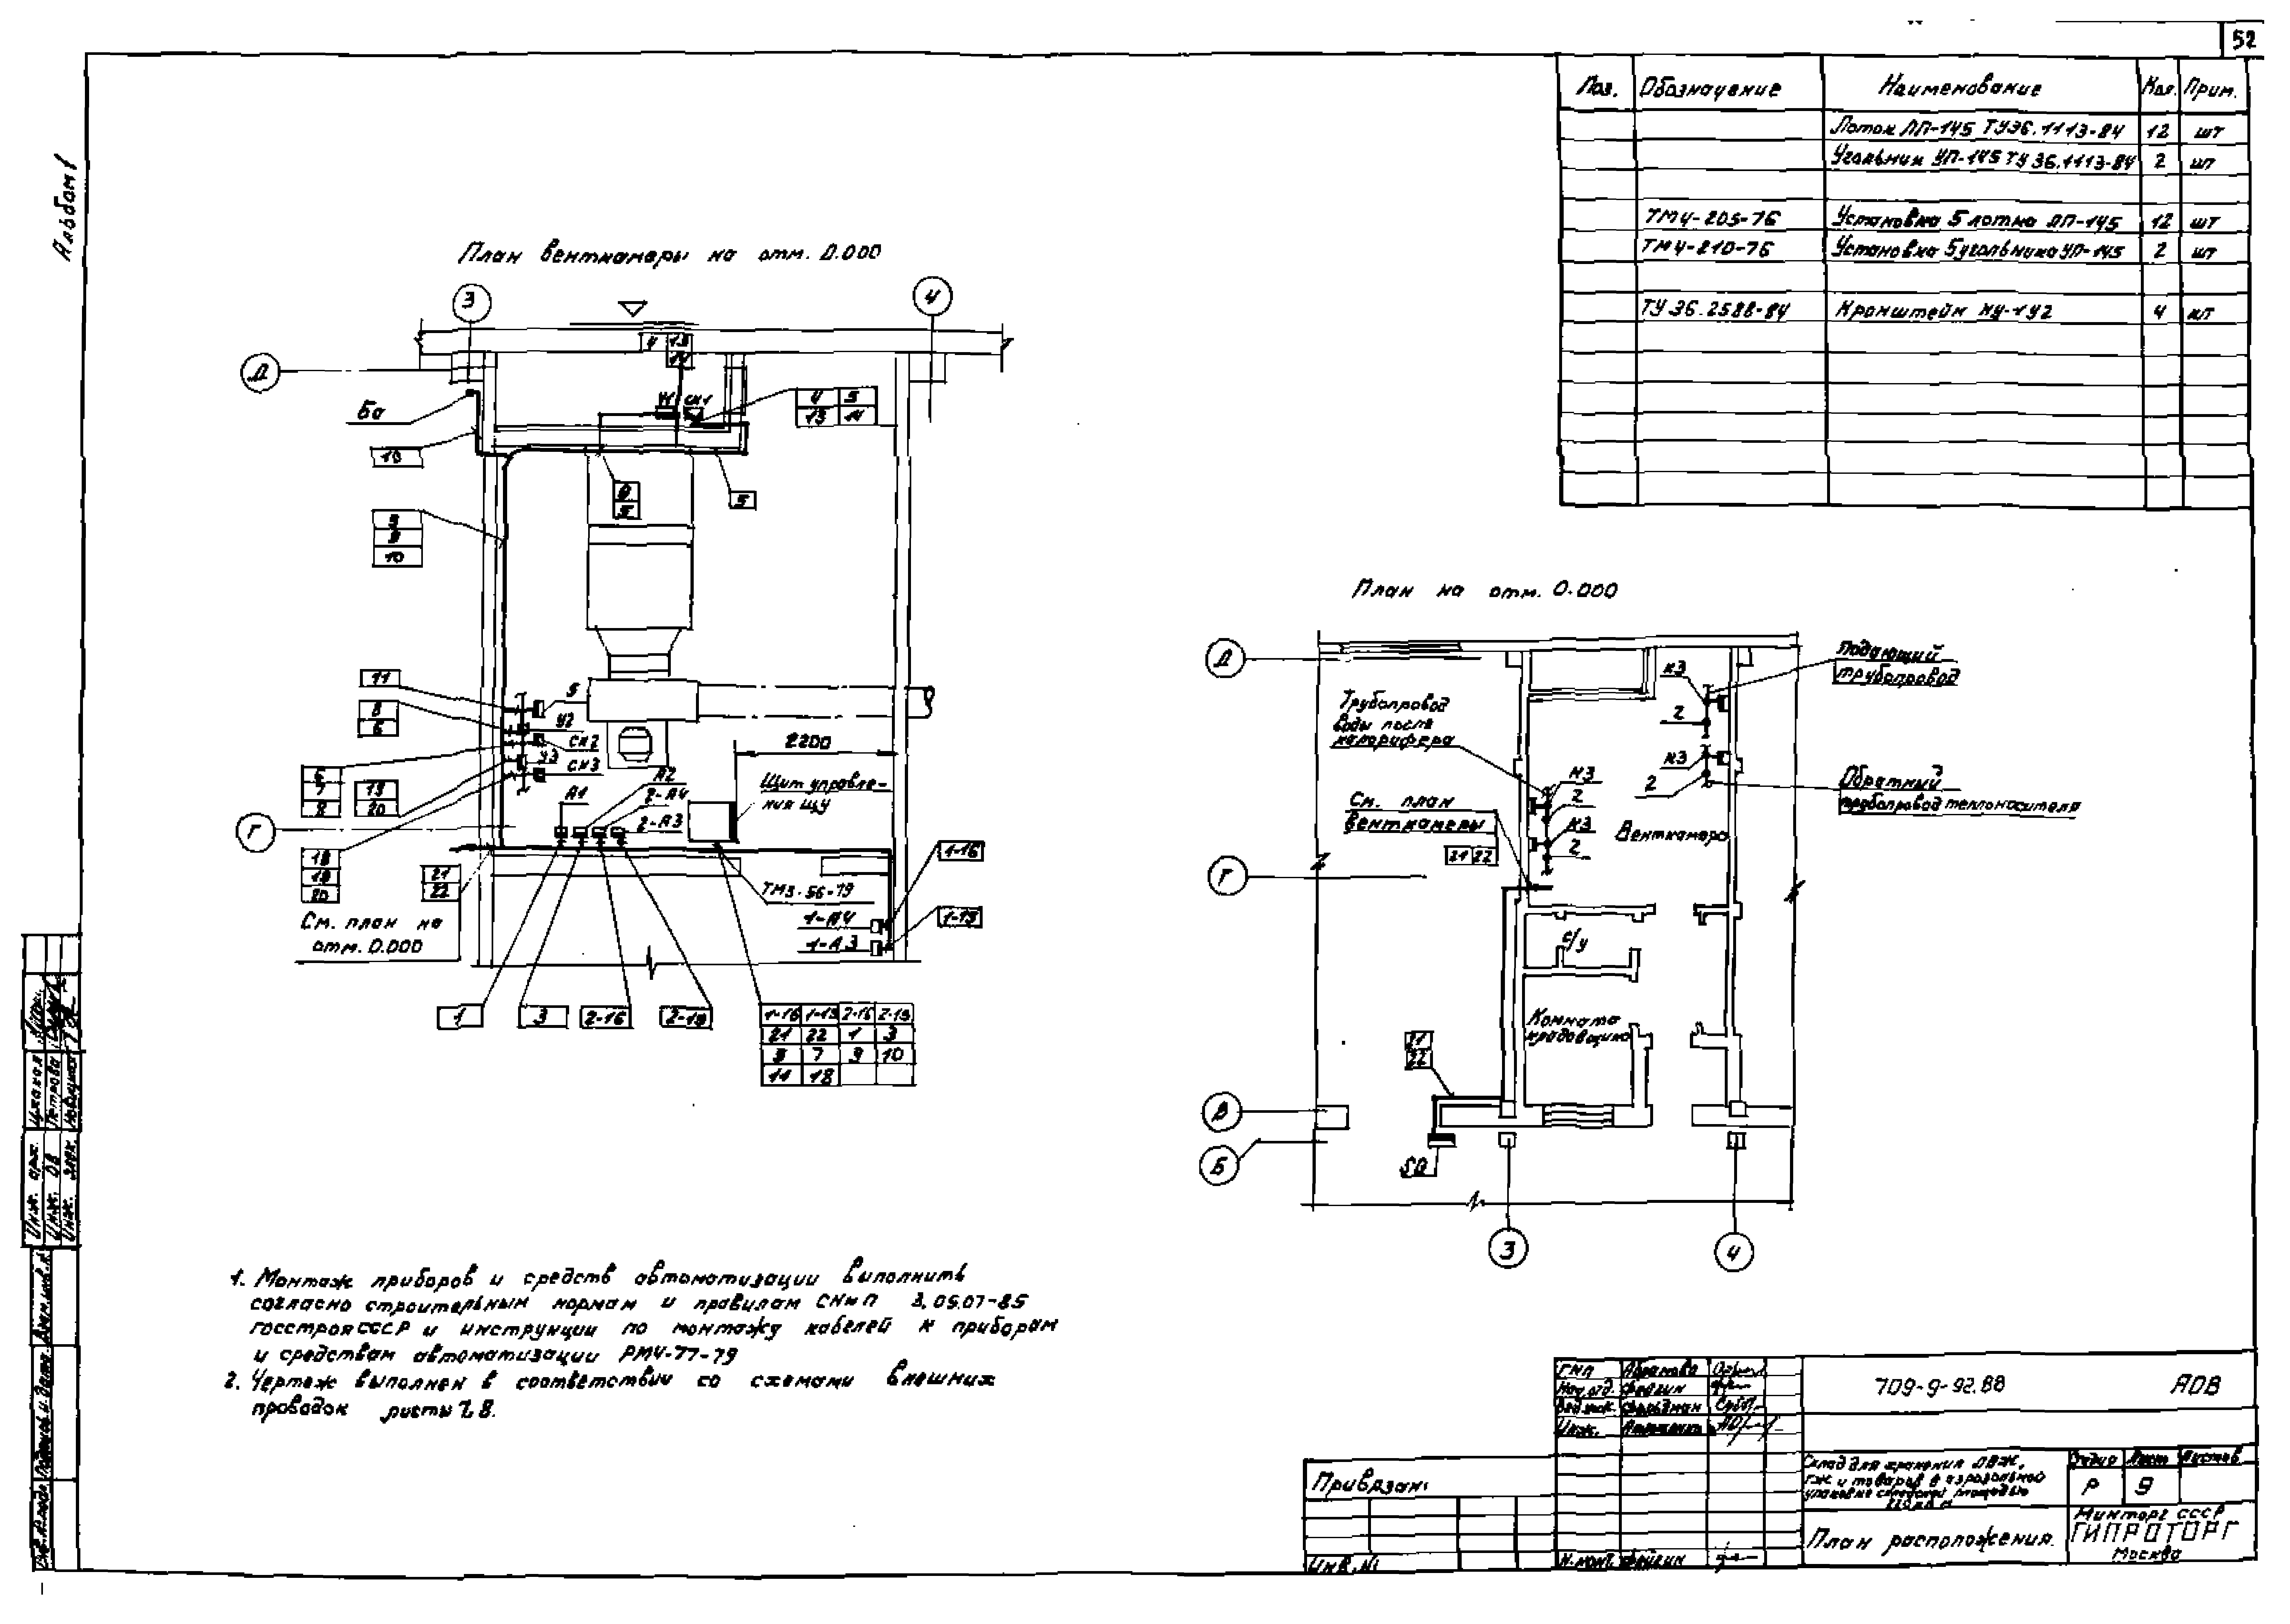 52
Альбом 1
Поз. Обозначение Наименование Кол. Прим.
Лоток ЛП-145 ТУ36.1113-84 12 шт
Угольник УП-145 ТУ 36.1113-84 2 шт
ТМ4-205-76 Установка 5 лотка ЛП-145 12 шт
ТМ4-210-76 Установка 5 угольника УП-145 2 шт
ТУ 36.2588-84 Кронштейн КУ-1У2 4 шт
План венткамеры на отм. 0.000
3
4
Д
4 13
14
У1 СК1
4 5
13 14
Ба
10
5
9
10
5
11
5
8
6
У2
СК2
У3
СК3
2200
6
7
8
19
20
А1
А2
2-А4
2-А3
Щит управле-
ния ЩУ
Г
18
19
20
21
22
1-16
ТМ3-56-79
1-А4
1-А3
См. план на
отм. 0.000
1
3
2-16
1-16 1-15 2-16 2-15
21 22 1 3
5 7 9 10
11 18
План на отм. 0.000
Д
Подающий
трубопровод
К3
2
Трубопровод
воды после
калорифера
К3
2
Обратный
трубопровод теплоносителя
К3
2
К3
2
См. план
венткамеры
21 22
Венткамера
Г
с/у
Комната
кладовщика
21
22
В
Б
SQ
3
4
1. Монтаж приборов и средств автоматизации выполнить
согласно строительным нормам и правилам СНиП 3.05.07-85
Госстроя СССР и инструкции по монтажу кабелей к приборам
и средствам автоматизации РМ4-77-79
2. Чертеж выполнен в соответствии со схемами внешних
проводок листы 7, 8.
Инж. арх.
Инж. ОВ Петрова
Инж. элек.
ГИП Абрамова
Нач. отд. Фейгин
Вед. инж. Фельдман
Инж.
Н. конт. Фейгин
709-9-92.88 АОВ
Склад для хранения ЛВЖ,
ГЖ и товаров в аэрозольной
упаковке складской площадью
Стадия Лист Листов
Р 9
План расположения.
Минторг СССР
ГИПРОТОРГ
Москва
Привязан:
Инв. №